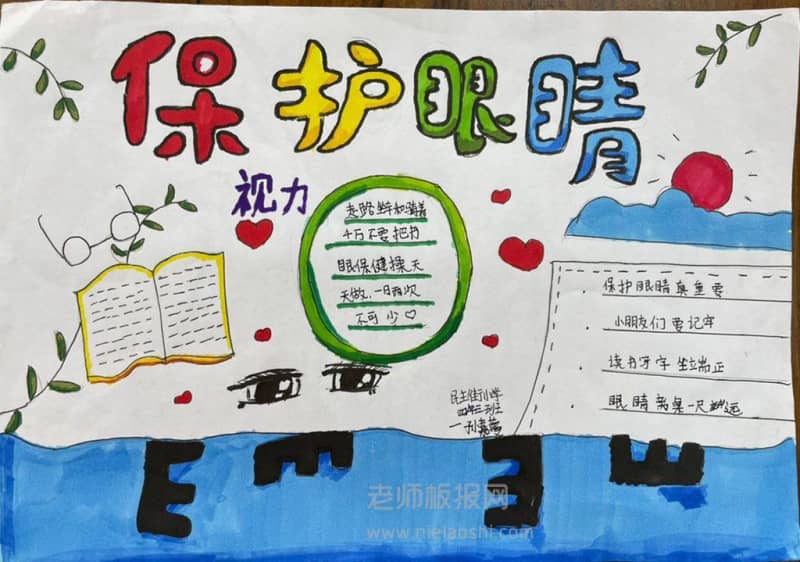 保护眼睛
视力
走路坐车和躺着
千万不要把书
眼保健操天
天做,一日两次
不可少♡
保护眼睛真重要
小朋友们要记牢
读书写字坐端正
眼睛离桌一尺远
民主街小学
四年三班
E
E
E
E
老师板报网
www.nielaoshi.com